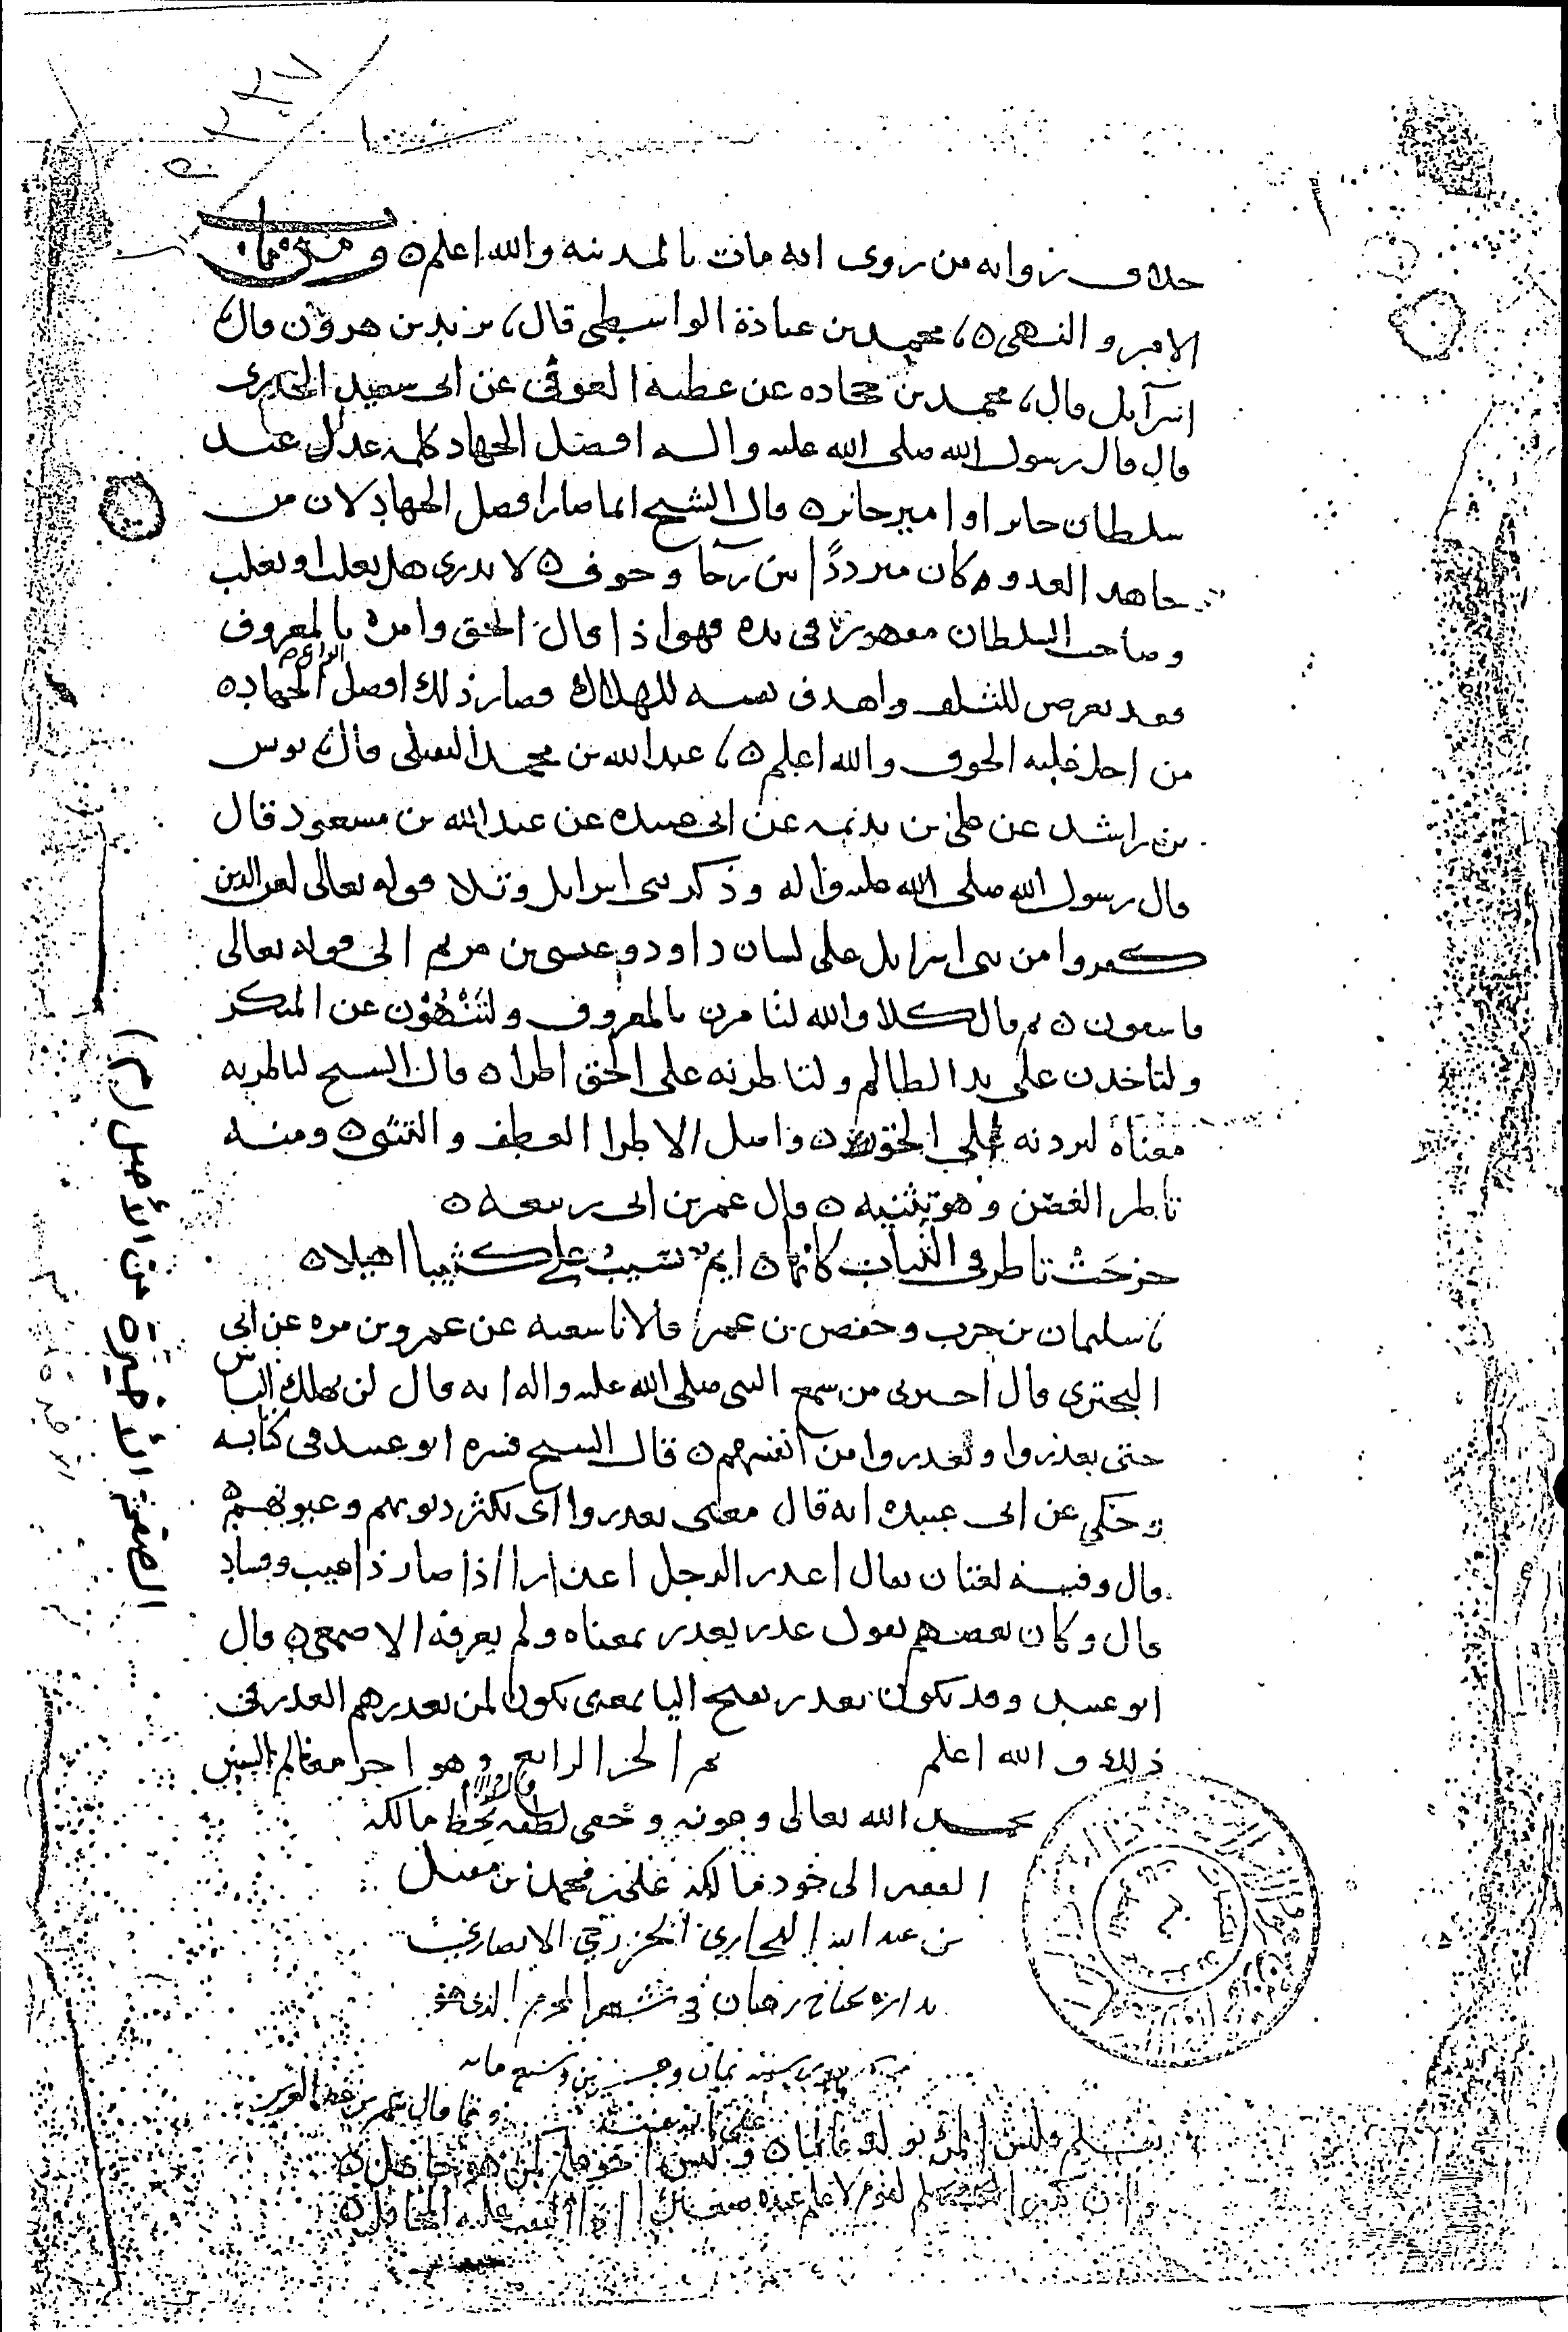 خلاف رواية من روى انه مات بالمدينة والله اعلم ه ومن باب
الامر والنهى ه محمد بن عبادة الواسطي قال، يزيد بن هرون قال
اسرآيل قال، محمد بن جحاده عن عطية العوفي عن ابى سعيد الخدرى
قال قال رسول الله صلى الله عليه واله افضل الجهاد كلمة عدل عند
سلطان جاير او امير جاير ه قال الشيخ انما صار افضل الجهاد لان من
جاهد العدو كان مترددًا بين رجا وخوف ه لا يدرى هل يغلب او يغلب
وصاحب السلطان مقهور فى يده فهو اذا قال الحق وامره بالمعروف
فقد تعرض للتلف واهدف نفسه للهلاك فصار ذلك افضل انواع الجهاد ه
من اجل غلبة الخوف والله اعلم ه، عبد الله بن محمد النفيلى قال، يونس
بن راشد عن على بن بذيمه عن ابى عبيده عن عبد الله بن مسعود قال
قال رسول الله صلى الله عليه واله وذكر بنى اسرايل وتلا قوله تعالى لعن الذين
كفروا من بنى اسرايل على لسان داود وعيسى بن مريم الى قوله تعالى
فاسقون ه ثم قال كلا والله لتأمرن بالمعروف ولتَنْهَوُن عن المنكر
ولتأخذن على يد الظالم ولتاطرنه على الحق اطرا ه قال الشيخ لتاطرنه
معناه لتردنه على الحق ه واصل الاطر العطف والتثنى ه ومنه
تاطر الغصن وهو تثنيه ه وقال عمر بن ابى ربيعة ه
خرجَتْ تاطر فى الثياب كانها ه ايم تسيب على كثيب اهيلا ه
، سليمان بن حرب وحفص بن عمر قالا نا شعبه عن عمرو بن مره عن ابى
البخترى قال اخبرنى من سمع النبى صلى الله عليه واله انه قال لن يهلك الناس
حتى يعذروا و يعذروا من انفسهم ه قال الشيخ فسره ابو عبيد فى كتابه
وحكى عن ابى عبيده انه قال معنى يعذروا اى تكثر ذنوبهم وعيوبهم
قال وفيه لغتان يقال اعذر الرجل اعذارا اذا صار ذا عيب وفساد
قال وكان بعضهم يقول عذر يعذر بمعناه ولم يعرفه الاصمعى ه قال
ابو عبيد وقد يكون يعذر بفتح اليا بمعنى يكون لمن يعذرهم العذر فى
ذلك والله اعلم تم الجز الرابع وهو اخر معالم السنن
بحمد الله تعالى وعونه وخفى لطفه بخط مالكه
الفقير الى جود مالكه على بن محمد بن
بن عبد الله النجاري الخزرجي الانصاري
فى شهر المحرم الذى هو
سنة ثمان و وسبع مايه
ومما قال عمر بن عبد العزيز
تعلم فليس المرء يولد عالما ه وليس اخو علم كمن هو جاهل ه
وان كبير القوم لا علم عنده صغير اذا التفت عليه المحافل ه
الصفحة الأخيرة من الأصل (م)